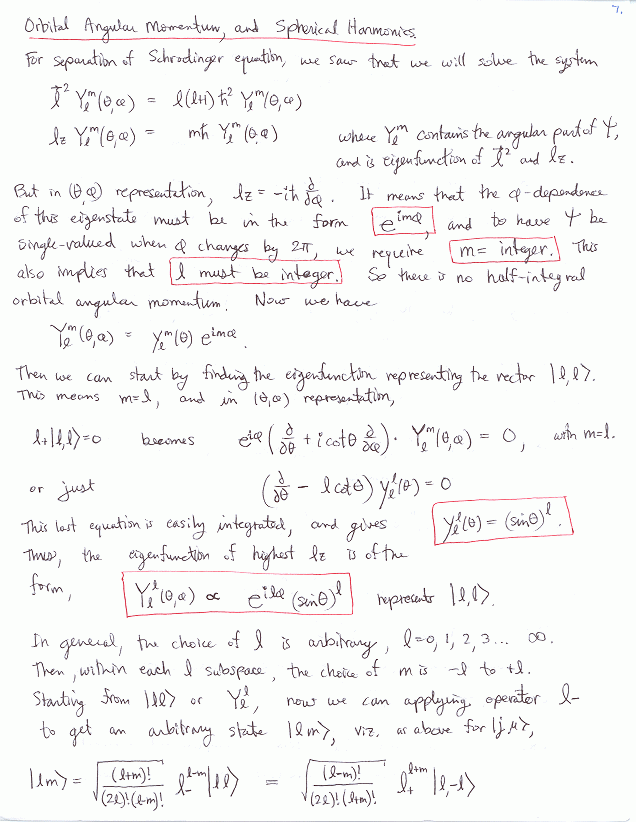 7.
Orbital Angular Momentum, and Spherical Harmonics.
For separation of Schrodinger equation, we saw that we will solve the system
l⃗² Yₗᵐ(θ,φ) = l(l+1) ħ² Yₗᵐ(θ,φ)
l_z Yₗᵐ(θ,φ) = mħ Yₗᵐ(θ,φ) where Yₗᵐ contains the angular part of Ψ,
and is eigenfunction of l⃗² and l_z.
But in (θ,φ) representation, l_z = -iħ ∂/∂φ. It means that the φ-dependence
of this eigenstate must be in the form e^{imφ}, and to have Ψ be
single-valued when φ changes by 2π, we require m = integer. This
also implies that l must be integer. So there is no half-integral
orbital angular momentum. Now we have
Yₗᵐ(θ,φ) = yₗᵐ(θ) e^{imφ}.
Then we can start by finding the eigenfunction representing the vector |l,l⟩.
This means m=l, and in (θ,φ) representation,
l₊|l,l⟩=0 becomes e^{iφ} (∂/∂θ + i cotθ ∂/∂φ) · Yₗᵐ(θ,φ) = 0, with m=l.
or just (∂/∂θ - l cotθ) yₗˡ(θ) = 0
This last equation is easily integrated, and gives yₗˡ(θ) = (sinθ)ˡ.
Thus, the eigenfunction of highest l_z is of the
form, Yₗˡ(θ,φ) ∝ e^{ilφ} (sinθ)ˡ represents |l,l⟩.
In general, the choice of l is arbitrary, l=0, 1, 2, 3... ∞.
Then, within each l subspace, the choice of m is -l to +l.
Starting from |ll⟩ or Yₗˡ, now we can applying operator l₋
to get an arbitrary state |lm⟩, viz. as above for |jμ⟩,
|lm⟩ = √((l+m)!/((2l)!(l-m)!)) l₋^{l-m} |ll⟩ = √((l-m)!/((2l)!(l+m)!)) l₊^{l+m} |l,-l⟩